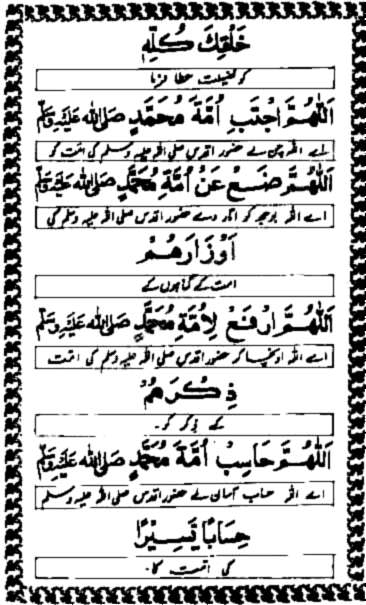 خَلْقِكَ كُلِّهِ
کو فضیلت عطا فرما
اَللّٰهُمَّ اجْتَبِ اُمَّةَ مُحَمَّدٍ صَلَّى اللهُ عَلَيْهِ وَسَلَّمَ
اے اللہ چن لے حضور اقدس صلی اللہ علیہ وسلم کی امت کو
اَللّٰهُمَّ ضَعْ عَنْ اُمَّةِ مُحَمَّدٍ صَلَّى اللهُ عَلَيْهِ وَسَلَّمَ
اے اللہ بوجھ کو اتار دے حضور اقدس صلی اللہ علیہ وسلم کی
اَوْزَارَهُمْ
امت کے گناہوں کے
اَللّٰهُمَّ ارْفَعْ لِاُمَّةِ مُحَمَّدٍ صَلَّى اللهُ عَلَيْهِ وَسَلَّمَ
اے اللہ اونچا کر حضور اقدس صلی اللہ علیہ وسلم کی امت
ذِكْرَهُمْ
کے ذکر کو۔
اَللّٰهُمَّ حَاسِبْ اُمَّةَ مُحَمَّدٍ صَلَّى اللهُ عَلَيْهِ وَسَلَّمَ
اے اللہ حساب آسانی لے حضور اقدس صلی اللہ علیہ وسلم
حِسَابًا يَّسِيْرًا
کی امت کا۔